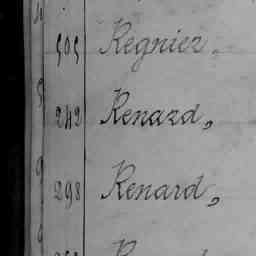 505 Regnier,
242 Renard,
298 Renard,